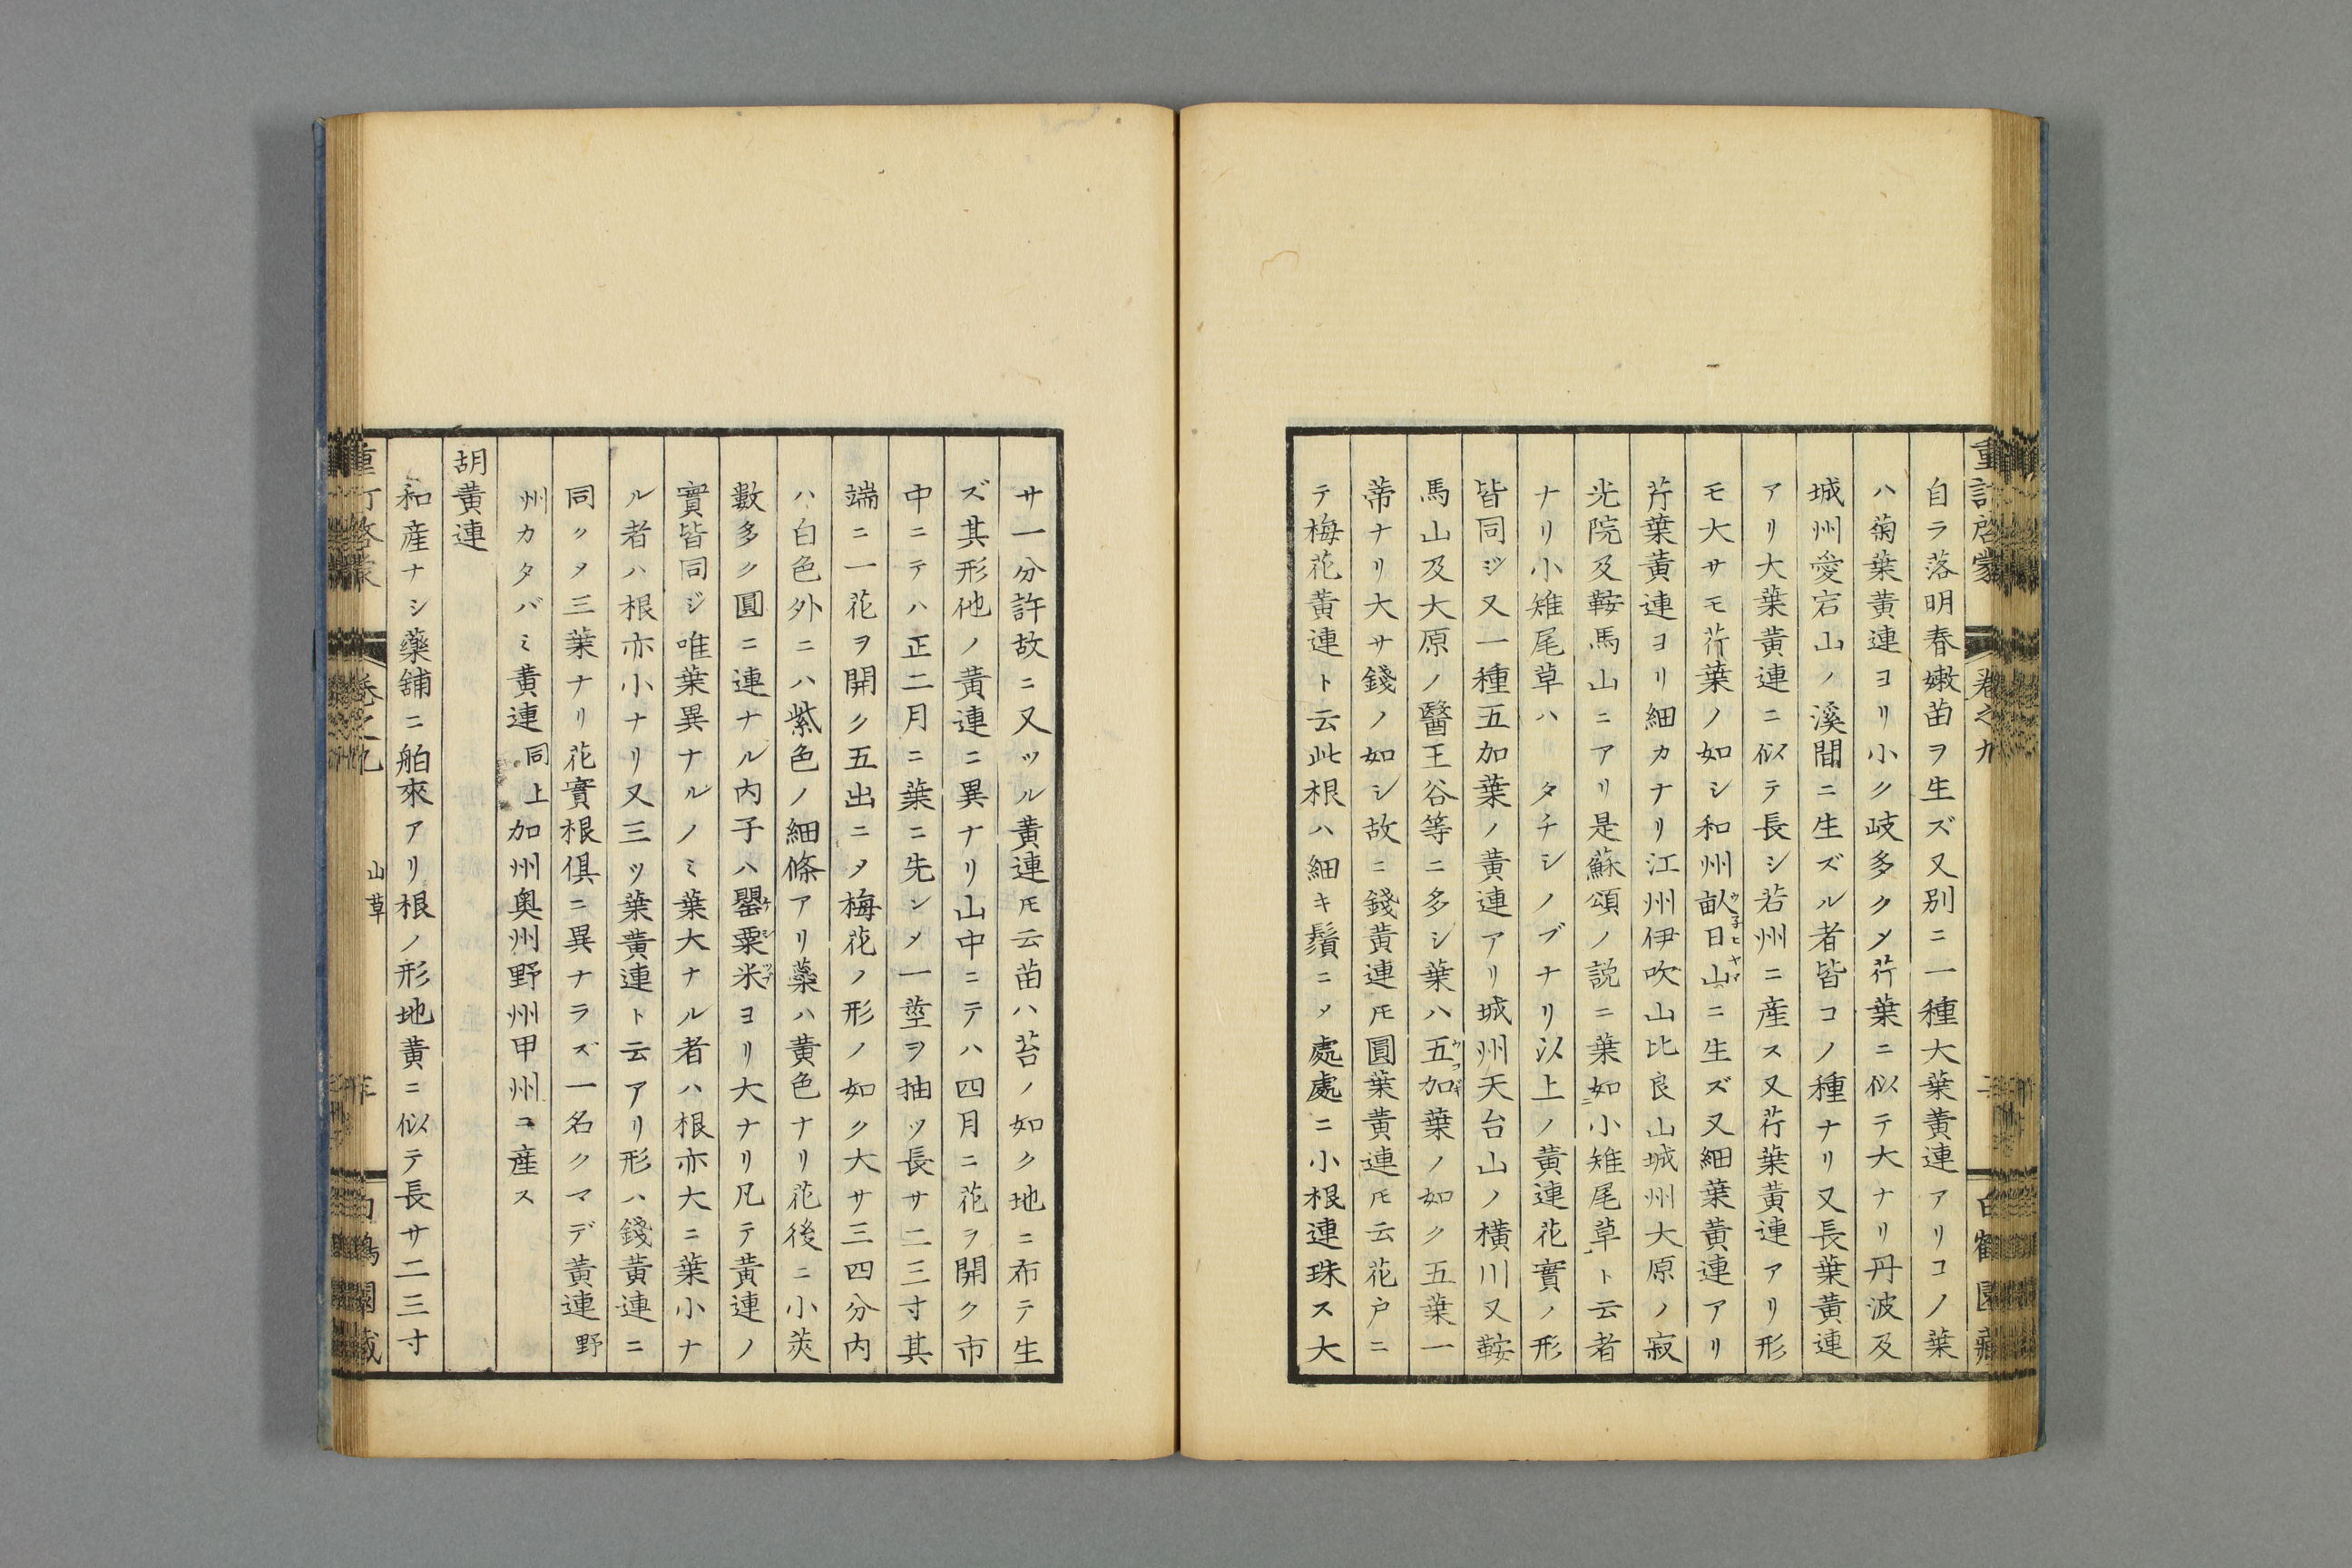 重訂啓蒙　卷之九　白鶴園藏
自ラ落明春嫩苗ヲ生ズ又別ニ一種大葉黄連アリコノ葉
ハ菊葉黄連ヨリ小ク岐多クメ芹葉ニ似テ大ナリ丹波及
城州愛宕山ノ溪間ニ生ズル者皆コノ種ナリ又長葉黄連
アリ大葉黄連ニ似テ長シ若州ニ産ス又芹葉黄連アリ形
モ大サモ芹葉ノ如シ和州畝日山ニ生ズ又細葉黄連アリ
芹葉黄連ヨリ細カナリ江州伊吹山比良山城州大原ノ寂
光院及鞍馬山ニアリ是蘇頌ノ説ニ葉如小雉尾草ト云者
ナリ小雉尾草ハタチシノブナリ以上ノ黄連花實ノ形
皆同ジ又一種五加葉ノ黄連アリ城州天台山ノ横川又鞍
馬山及大原ノ醫王谷等ニ多シ葉ハ五加葉ノ如ク五葉一
蒂ナリ大サ錢ノ如シ故ニ錢黄連𪜈圓葉黄連𪜈云花戸ニ
テ梅花黄連ト云此根ハ細キ鬚ニメ處處ニ小根連珠ス大
サ一分許故ニ又ツル黄連𪜈云苗ハ苔ノ如ク地ニ布テ生
ズ其形他ノ黄連ニ異ナリ山中ニテハ四月ニ花ヲ開ク市
中ニテハ正二月ニ葉ニ先ンメ一莖ヲ抽ツ長サ二三寸其
端ニ一花ヲ開ク五出ニメ梅花ノ形ノ如ク大サ三四分内
ハ白色外ニハ紫色ノ細條アリ蘂ハ黄色ナリ花後ニ小莢
數多ク圓ニ連ナル内子ハ罌粟米ヨリ大ナリ凡テ黄連ノ
實皆同ジ唯葉異ナルノミ葉大ナル者ハ根亦大ニ葉小ナ
ル者ハ根亦小ナリ又三ツ葉黄連ト云アリ形ハ錢黄連ニ
同クメ三葉ナリ花實根俱ニ異ナラズ一名クマデ黄連野
州カタバミ黄連同上加州奥州野州甲州ニ産ス
胡黄連
和産ナシ藥舖ニ舶來アリ根ノ形地黄ニ似テ長サ二三寸
山草